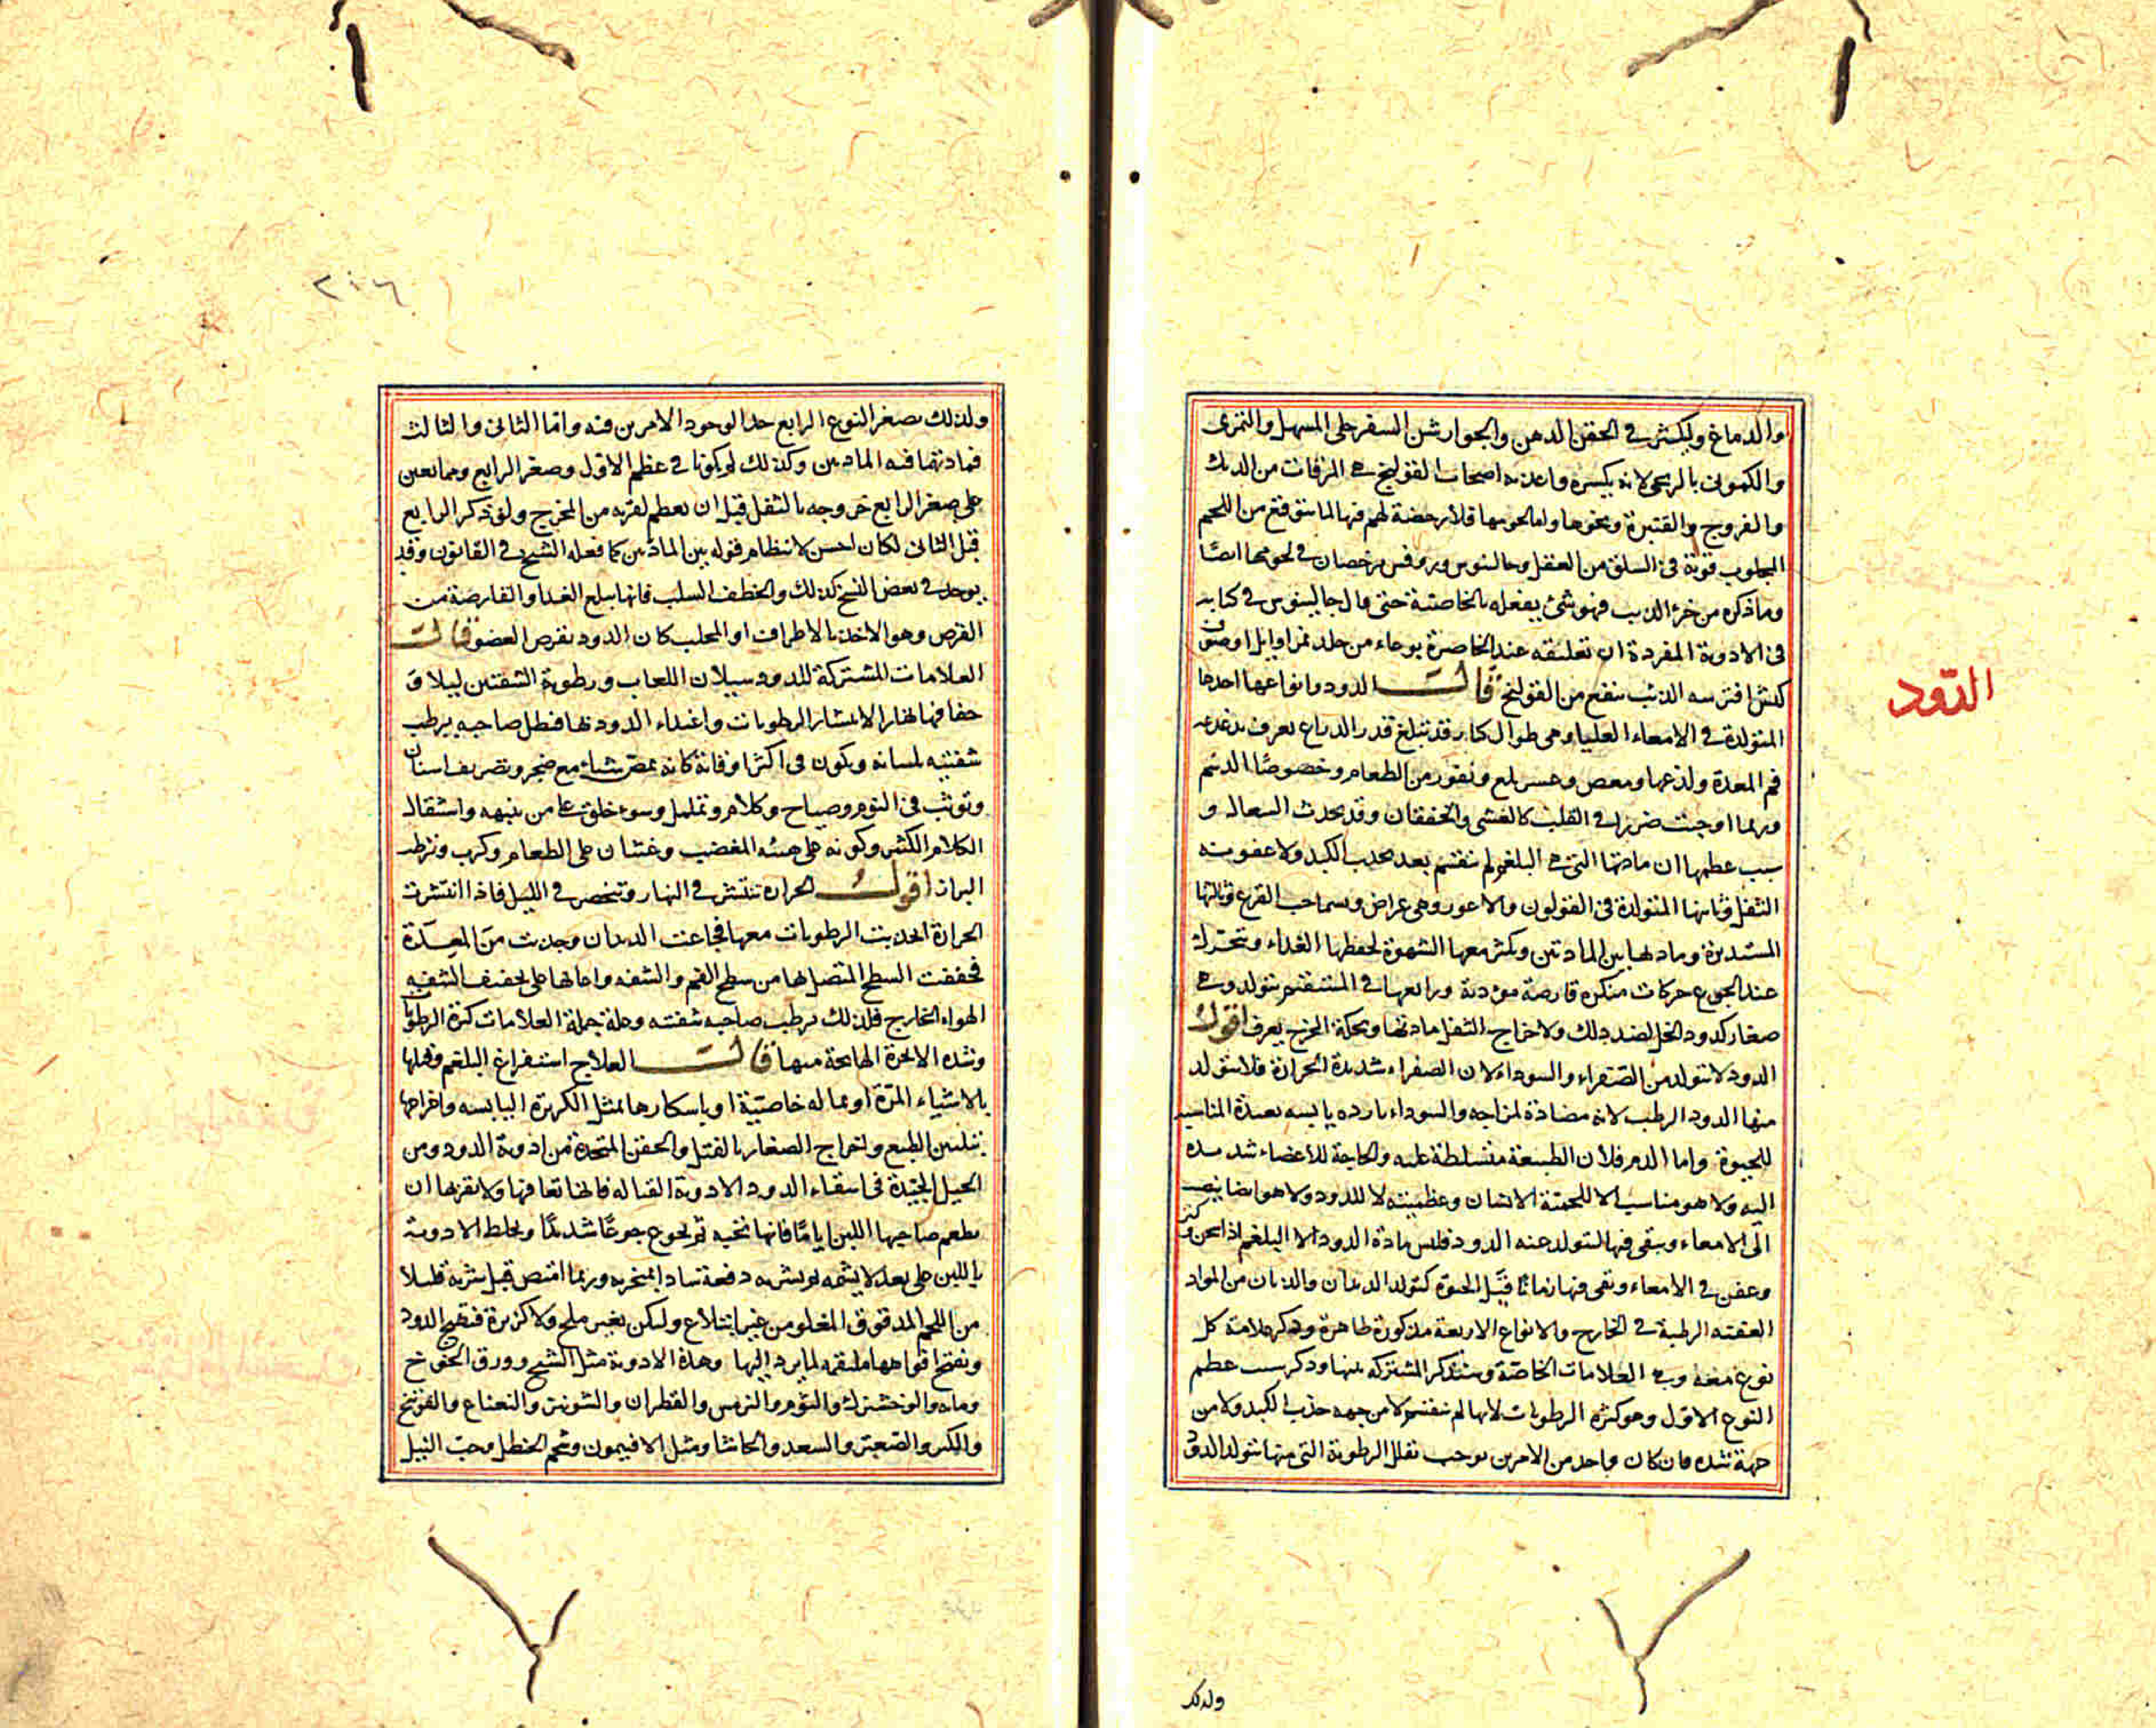 والدماغ وليكثر في الحقن الدهن والجوارشن السفرجلي المسهل والتمري
والكموني بالريحي لانه يكسره واغذيه اصحاب القولنج هي المرقات من الديك
والفروج والقنبرة ونحوها واما لحومها فلا رخصة لهم فيها لما يتوقع من اللحم
المجلوب قوته في السلق من العقل وجالينوس وروفس يرخصان في لحومها ايضا
وما ذكره من خرء الذيب فهو شئ يفعله بالخاصية حتى قال جالينوس في كتابه
في الادوية المفردة ان تعليقه عند الخاصرة بوعاء من جلد نمر او ايل او صوف
كبش افترسه الذئب ينفع من القولنج قالـــت الدود وانواعها احدها
الدود
المتولدة في الامعاء العليا وهي طوال كبار قد تبلغ قدر الذراع يعرف بدغدغه
فم المعدة ولذعها ومغص وعسر بلع ونفور من الطعام وخصوصا الدسم
وربما اوجبت ضررا في القلب كالغشي والخفقان وقد يحدث السعال و
سبب عظمها ان مادتها التي هي البلغم لم تنقسم بعد بجذب الكبد ولا عفونته
الثفل وثانيها المتولدة في القولون والاعور وهي عراض ويسما حب القرع وثالثها
المستديرة ومادتها بين المادتين ويكثر معها الشهوة لخطفها الغذاء وتتحرك
عند الجوع حركات منكره قارصة موذية ورابعها في المستقيم يتولد وهي
صغار كدود الخل لضد ذلك ولاخراج الثفل مادتها وبحكة المخرج يعرف اقول
الدود لا يتولد من الصفراء والسوداء لان الصفراء شديدة الحرارة فلا يتولد
منها الدود الرطب لانه مضادة لمزاجه والسوداء بارده يابسه بعيدة المناسبه
للحيوة واما الدم فلان الطبيعة متسلطة عليه والحاجة للاعضاء شديده
اليه ولا هو مناسب الا للحمية الانسان وعظميته لا للدود ولا هو ايضا ينصب
الى الامعاء ويبقى فيها ليتولد عنه الدود فليس مادة الدود الا البلغم اذا سخن وكثر
وعفن في الامعاء وبقى فيها زمانا قبل الحيوة كتولد الديدان والذبان من المواد
العفنه الرطبة في الخارج والانواع الاربعة مذكورة ظاهرة وذكر علامة كل
نوع معه وهي العلامات الخاصة وسنذكر المشتركه بينها وذكر سبب عظم
النوع الاول وهو كثرة الرطوبات لانها لم تنقسم لا من جهه جذب الكبد ولا من
جهة شده فان كان واحد من الامرين يوجب تقلل الرطوبة التي منها يتولد الدود
ولذلك
٢٠٦
ولذلك يصغر النوع الرابع جدا لوجود الامرين فيه واما الثاني والثالث
فمادتهما فيه المادتين وكذلك لو يكونا في عظم الاول وصغر الرابع ومما يعين
على صغر الرابع خروجه بالثفل قبل ان يعظم لقربه من المخرج ولو ذكر الرابع
قبل الثاني لكان احسن لانتظام قوله بين المادتين كما فعله الشيخ في القانون وقد
يوجد في بعض النسخ كذلك والخطف السلب فانها يبلع الغذا والقارصة من
القرص وهو الاخذ بالاطراف او المخلب كان الدود يقرص العضو قالت
العلامات المشتركة للدود سيلان اللعاب ورطوبة الشفتين ليلا و
جفافها نهارا لانتشار الرطوبات واغتذاء الدود بها فيظل صاحبه يرطب
شفتيه بلسانه ويكون في اكثر اوقاته كانه يمضغ شيا مع ضجر وتصريف اسنان
وتوثب في النوم وصياح وكلام وتململ وسوء خلق على من ينبهه واستثقال
الكلام الكثير وكونه على هيئه المغضب وغثيان على الطعام وكرب وترطب
البراز اقول الحراره تنتشر في النهار وتنحصر في الليل فاذا انتشرت
الحرارة انجذبت الرطوبات معها فجاعت الديدان وجذبت من المعدة
فجففت السطح المتصل بها من سطح الفم والشفه واعانها على تجفيف الشفه
الهواء الخارج فلذلك يرطب صاحبه شفته وعلة جملة العلامات كثرة الرطوبات
وشده الابخرة الهائجة منها قالـــت العلاج استفراغ البلغم وقتلها
بالاشياء المرة او بما له خاصيّة او باسكارها بمثل الكزبرة اليابسه واخراجها
بتليين الطبع واخراج الصغار بالفتل والحقن المتخذة من ادوية الدود ومن
الحيل الجيّدة في اسقاء الدود الادوية القتاله فانها تعافها ولا تقربها ان
يطعم صاحبها اللبن اياما فانها تحبه ثم يجوع جوعا شديدا ويخلط الادوية
باللبن على بعد لا يشمه ثم يشربه دفعة سادا لمنخريه وربما امتص قبل شربه قليلا
من اللحم المدقوق المغلو من غير ابتلاع وليكن بغير ملح ولا كزبرة فتهيج الدود
وتفتح افواهها ملتقمه لما يرد اليها وهذة الادوية مثل الشيح وورق الخوخ
وماءه والوخشيزك والثوم والترمس والقطران والشونيز والنعناع والفوتنج
والكبر والصعتر والسعد والحاشا ومثل الافيمون وشحم الحنظل وحب النيل